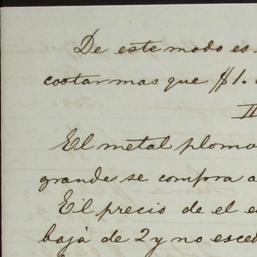 De este modo es
costar mas que $1.
II
El metal plomo
grande se compra a
El precio de el e
baja de 2 y no esced